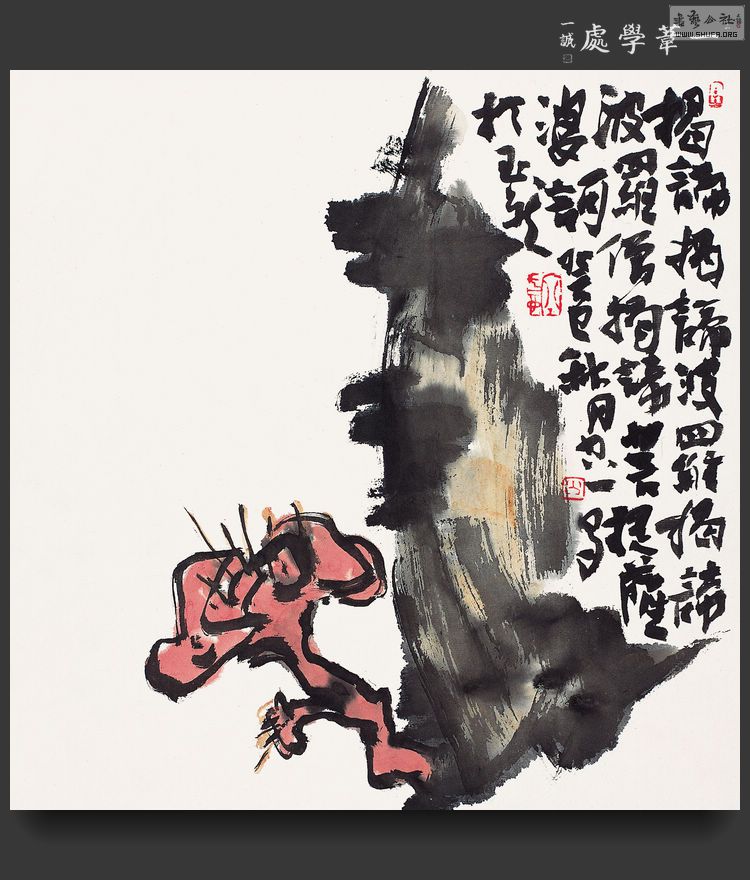 书艺公社
WWW.SHUFA.ORG
葦學處
一誠
揭諦揭諦波羅揭諦
波羅僧揭諦菩提薩
婆訶 癸巳秋月 一写
於玉